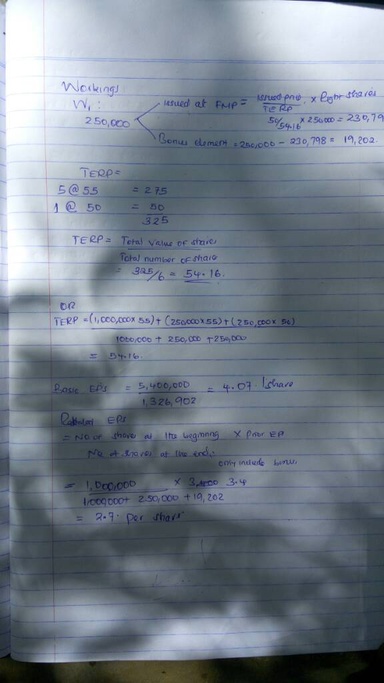 Workings
W1:
250,000
issued at FMP = issued price / TERP × Right shares
50/54.16 × 250,000 = 230,79
Bonus element = 250,000 - 230,798 = 19,202.
TERP =
5 @ 55 = 275
1 @ 50 = 50
325
TERP = Total value of shares
Total number of share
= 325/6 = 54.16.
OR
TERP = (1,000,000 × 55) + (250000 × 55) + (250,000 × 50)
1000,000 + 250,000 + 250,000
= 54.16.
Basic EPS = 5,400,000 = 4.07 /share
1,326,902
EPS
= No of shares at the beginning × prior EP
No of shares at the end.
only include bonus
= 1,000,000 × 3.4
1,000000 + 250,000 + 19,202
= 2.7 per share